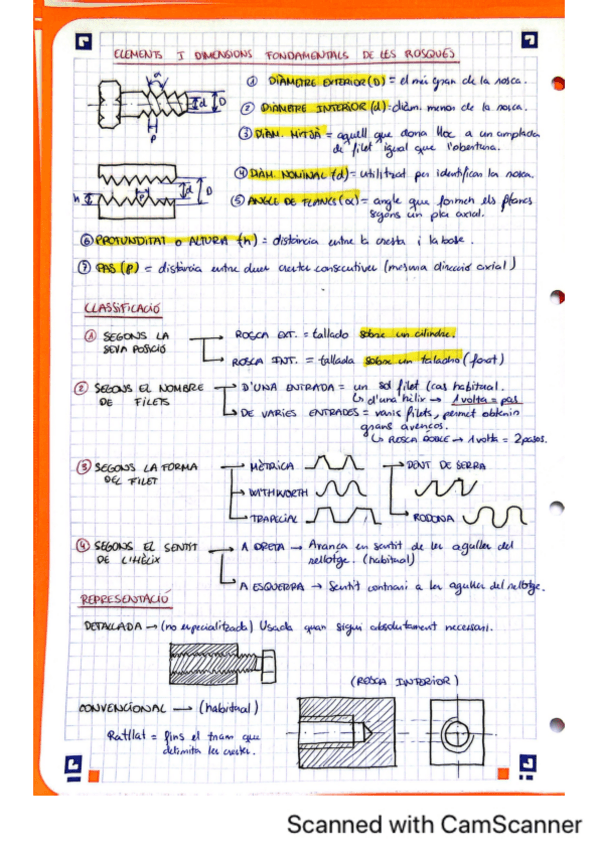 ELEMENTS I DIMENSIONS FONDAMENTALS DE LES ROSQUES
① DIÀMETRE EXTERIOR (D) = el més gran de la rosca.
② DIÀMETRE INTERIOR (d) = diàm. menor de la rosca.
③ DIÀM. MITJÀ = aquell que dona lloc a un amplada
de filet igual que l'obertura.
④ DIÀM. NOMINAL (d) = utilitzat per identificar la rosca.
⑤ ANGLE DE FLANCS (α) = angle que formen els flancs
segons un pla axial.
α
d
D
P
h
P
d
D
⑥ PROFUNDITAT o ALTURA (h) = distància entre la cresta i la base.
⑦ PAS (p) = distància entre dues crestes consecutives (mesuma direcció axial)
CLASSIFICACIÓ
① SEGONS LA
SEVA POSICIÓ
ROSCA EXT. = tallado sobre un cilindre.
ROSCA INT. = tallada sobre un taladro (forat)
② SEGONS EL NOMBRE
DE FILETS
D'UNA ENTRADA = un sol filet (cas habitual.
↳ d'una hèlix → 1 volta = pas
DE VARIES ENTRADES = varis filets, permet obtenir
grans avenços.
↳ ROSCA DOBLE → 1 volta = 2 pasos.
③ SEGONS LA FORMA
DEL FILET
MÈTRICA
WITHWORTH
TRAPECIAL
DENT DE SERRA
RODONA
④ SEGONS EL SENTIT
DE L'HÈLIX
A DRETA → Avança en sentit de les agulles del
rellotge. (habitual)
A ESQUERRA → Sentit contrari a les agulles del rellotge.
REPRESENTACIÓ
DETALLADA → (no especialitzada) Usada quan sigui absolutament necessari.
(ROSCA INTERIOR)
CONVENCIONAL → (habitual)
Ratllat = fins el tram que
delimita les crestes.
Scanned with CamScanner